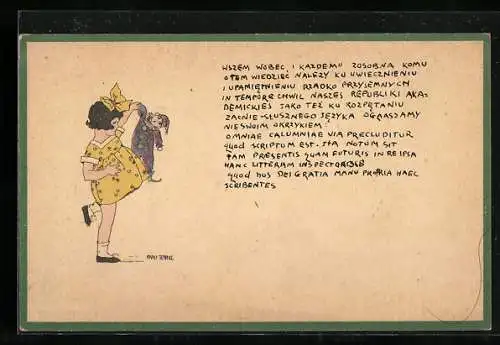 WSZEM WOBEC I KAŻDEMU ZOSOBNA KOMU
O TEM WIEDZIEĆ NALEŻY KU UWIECZNIENIU
I UPAMIĘTNIENIU RZADKO PRZYJEMNYCH
IN TEMPORE CHWIL NASZEJ REPUBLIKI AKA-
DEMICKIEJ JAKO TEŻ KU ROZPĘTANIU
ZACNIE-SŁUSZNEGO JĘZYKA OGŁASZAMY
NIESWOIM OKRZYKIEM:
OMNIAE CALUMNIAE VIA PRECLUDITUR
QUOD SCRIPTUM EST. ITA NOTUM SIT
TAM PRESENTIS QUAM FUTURIS IN RE IPSA
HANC LITTERAM INSPECTORIBUS
QUOD NOS DEI GRATIA MANU PROPRIA HAEC
SCRIBENTES